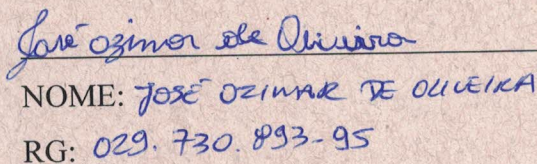 José Ozimar de Oliveira
NOME: JOSÉ OZIMAR DE OLIVEIRA
RG: 029.730.893-95